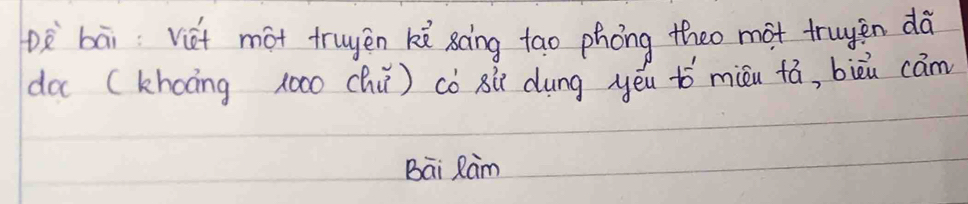 Đề bài : Viết một truyện kể sáng tạo phỏng theo một truyện đã
đọc (khoảng 1000 chữ) có sử dụng yếu tố miêu tả, biểu cảm
Bài làm